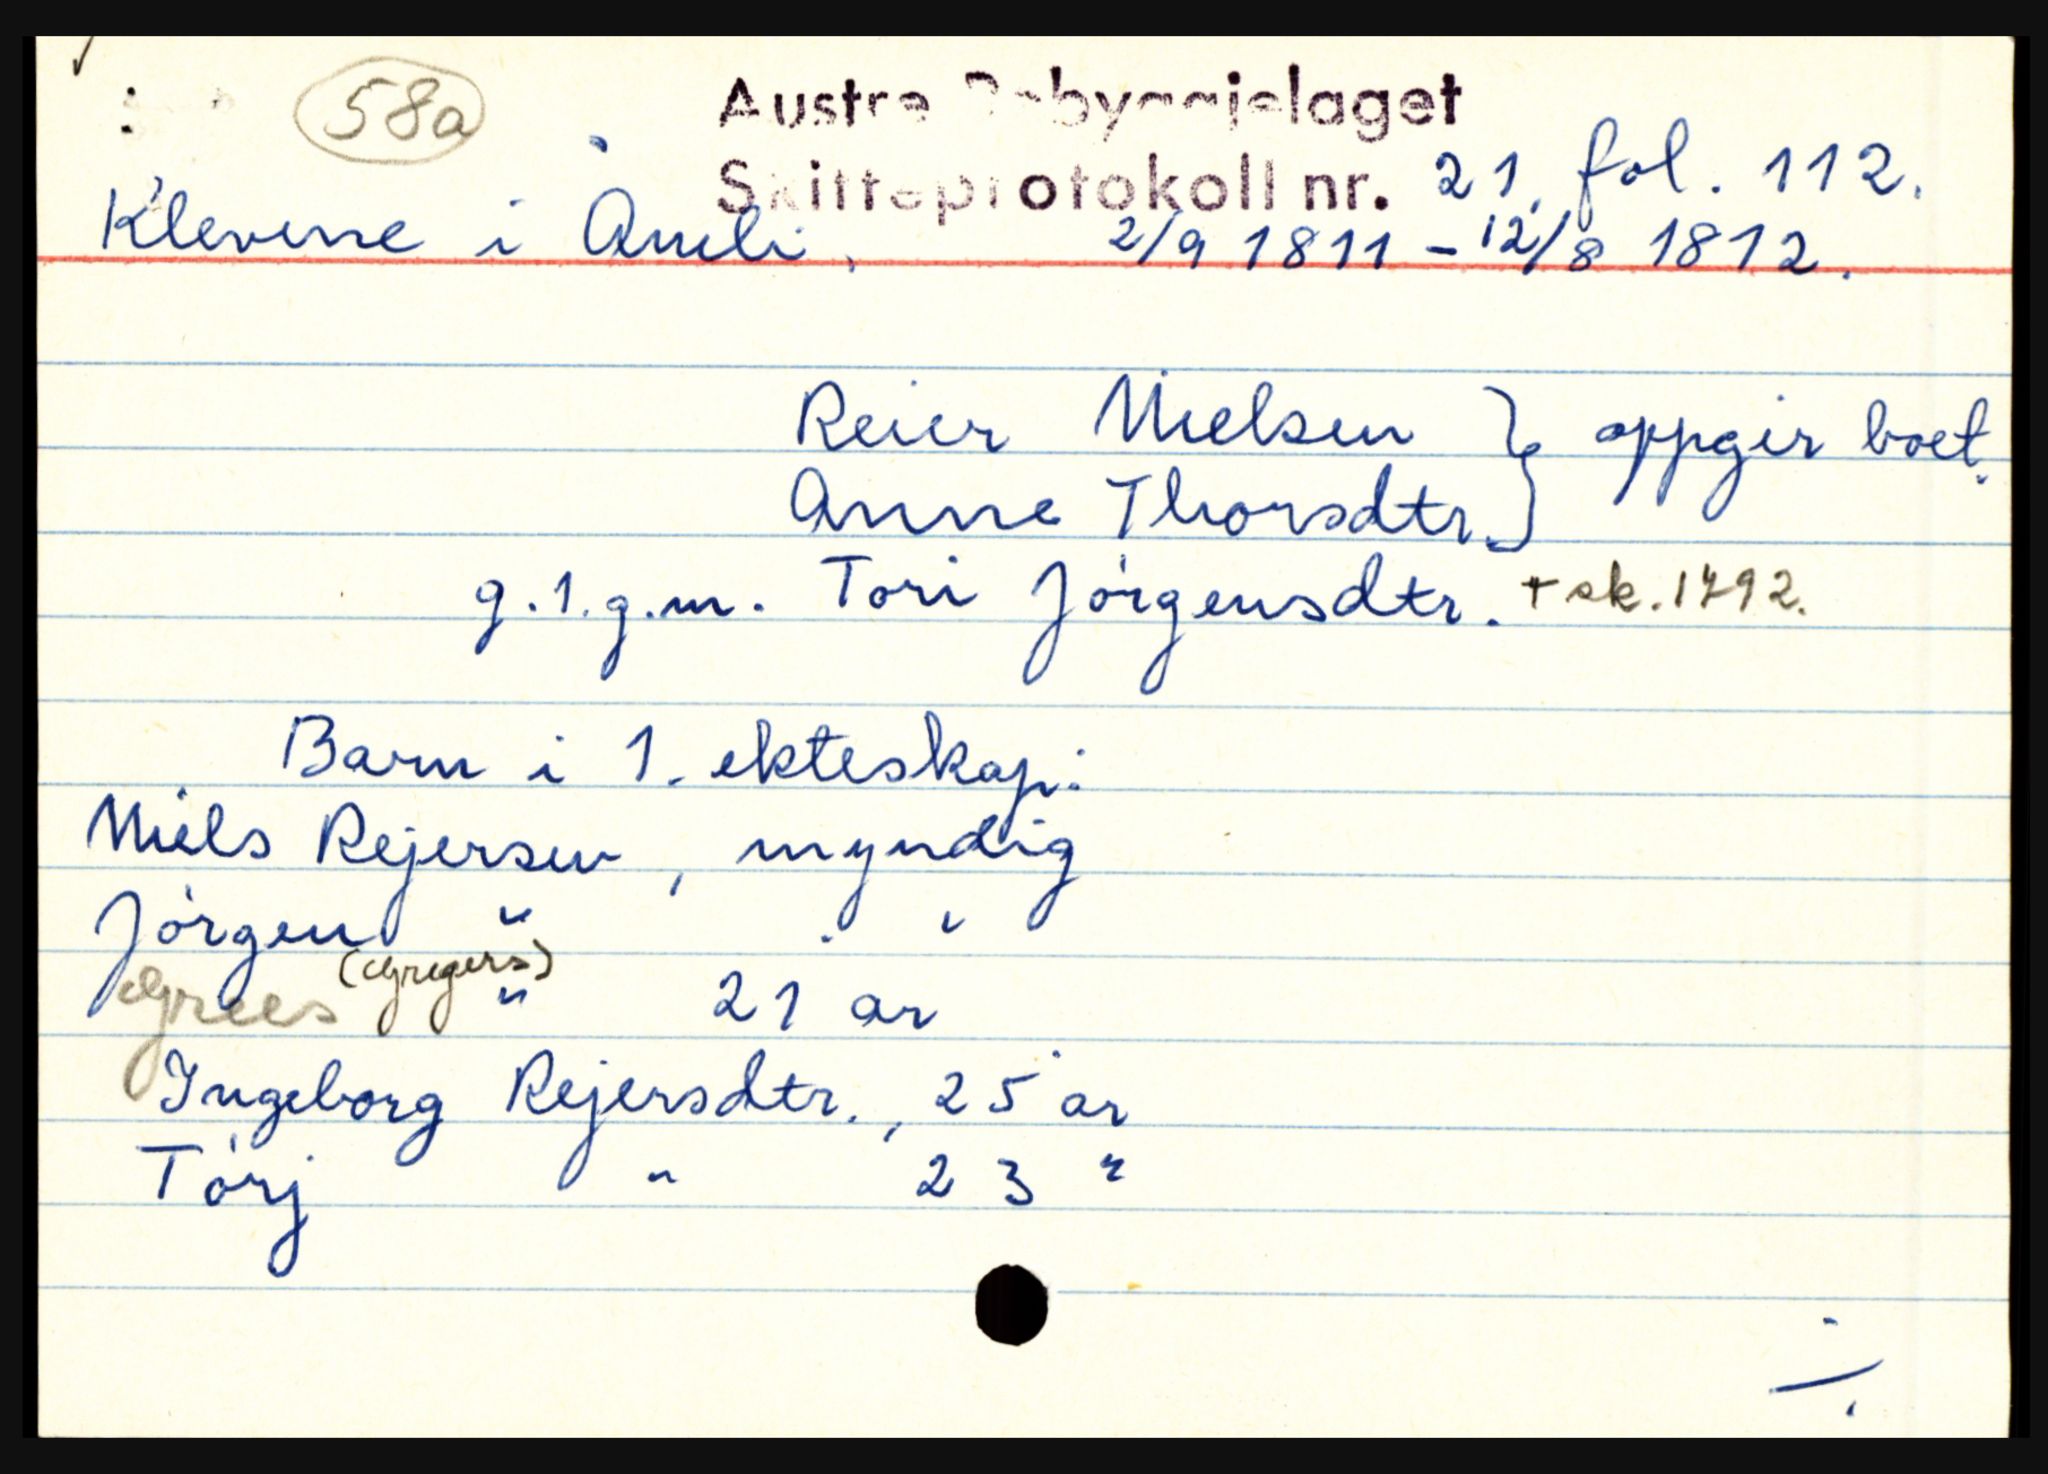 58a
Austre Robyggjelaget
Skifteprotokoll nr. 21. fol. 112.
Klevene i Åmli, 2/9 1811 - 12/8 1812.
Reier Nielsen } oppgir boet.
Anne Thorsdtr. }
g.1.g.m. Tori Jörgensdtr. + sk. 1792.
Barn i 1. ekteskap:
Niels Rejersen, myndig
Jörgen " "
Grees (Gregers) " 21 år
Ingeborg Rejersdtr., 25 år
Törj " 23 "